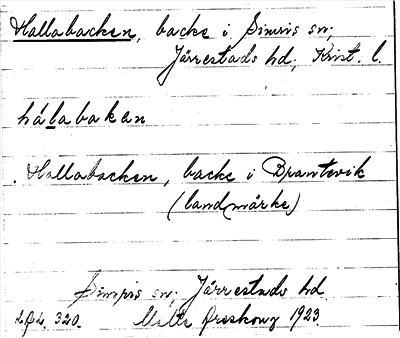 Hallabacken, backe i Simris sn;
Järrestads hd; Krist. l.
hálabakan
Hallabacken, backe i Brantevik
(landmärke)
Simris sn; Järrestads hd.
320. Malte 1923